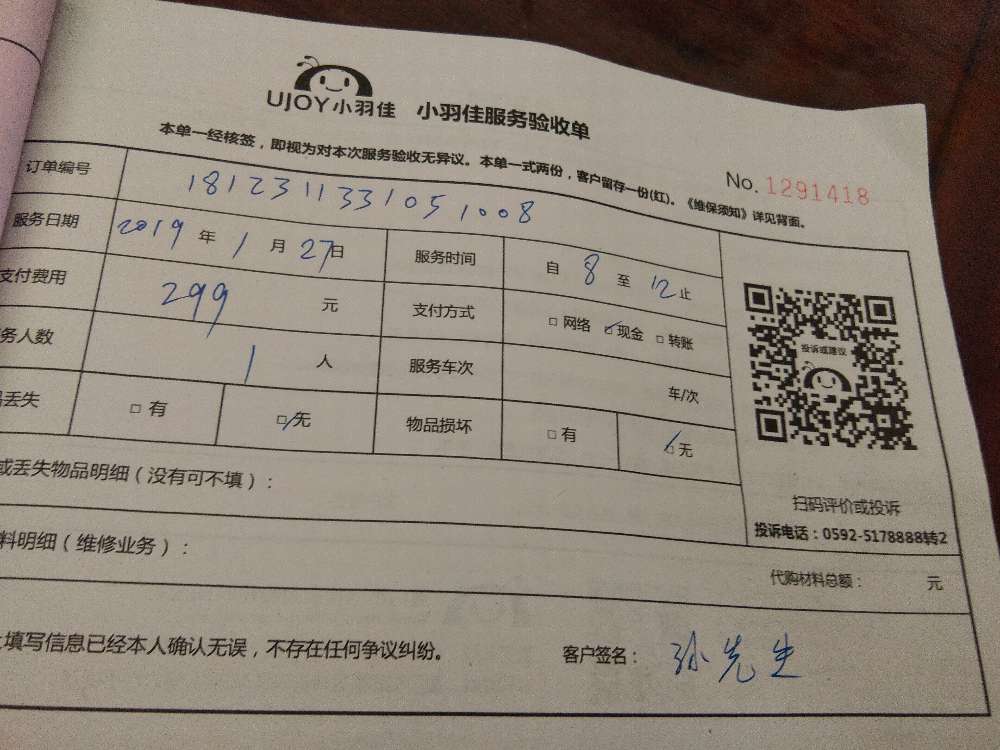 UJOY小羽佳 小羽佳服务验收单
本单一经核签，即视为对本次服务验收无异议。本单一式两份，客户留存一份(红)。《维保须知》详见背面。
No. 1291418
订单编号 181231133105 1008
服务日期 2019 年 1 月 27 日 服务时间 自 8 至 12 止
支付费用 299 元 支付方式 □ 网络 ☑ 现金 □ 转账
务人数 1 人 服务车次 车/次
丢失 □ 有 ☑ 无 物品损坏 □ 有 ☑ 无
投诉或建议
扫码评价或投诉
投诉电话：0592-5178888转2
或丢失物品明细（没有可不填）：
料明细（维修业务）：
代购材料总额： 元
填写信息已经本人确认无误，不存在任何争议纠纷。 客户签名： 孙先生